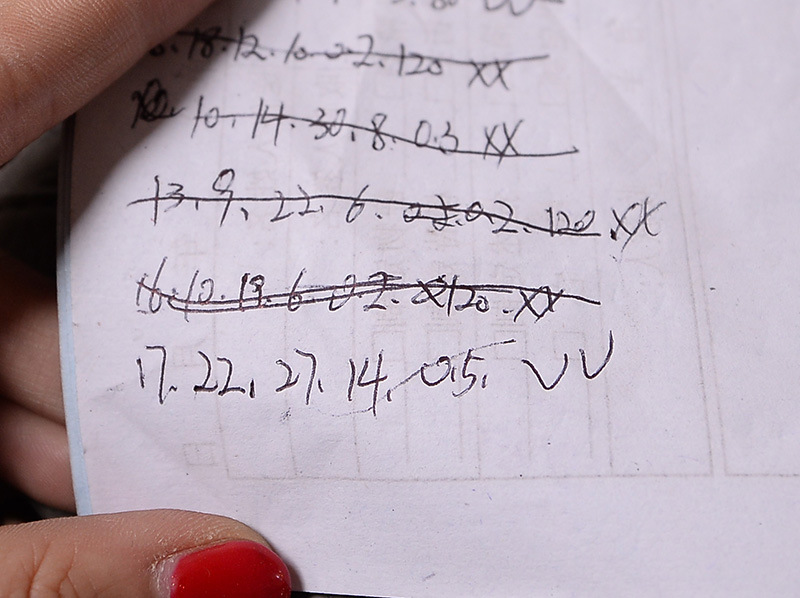 18.12.10.0.2.120 XX
10.14.30.8.0.3 XX
13.9.22.6.0.2.120.XX
16.10.19.6.0.2.120.XX
17.22.27.14.0.5. VV